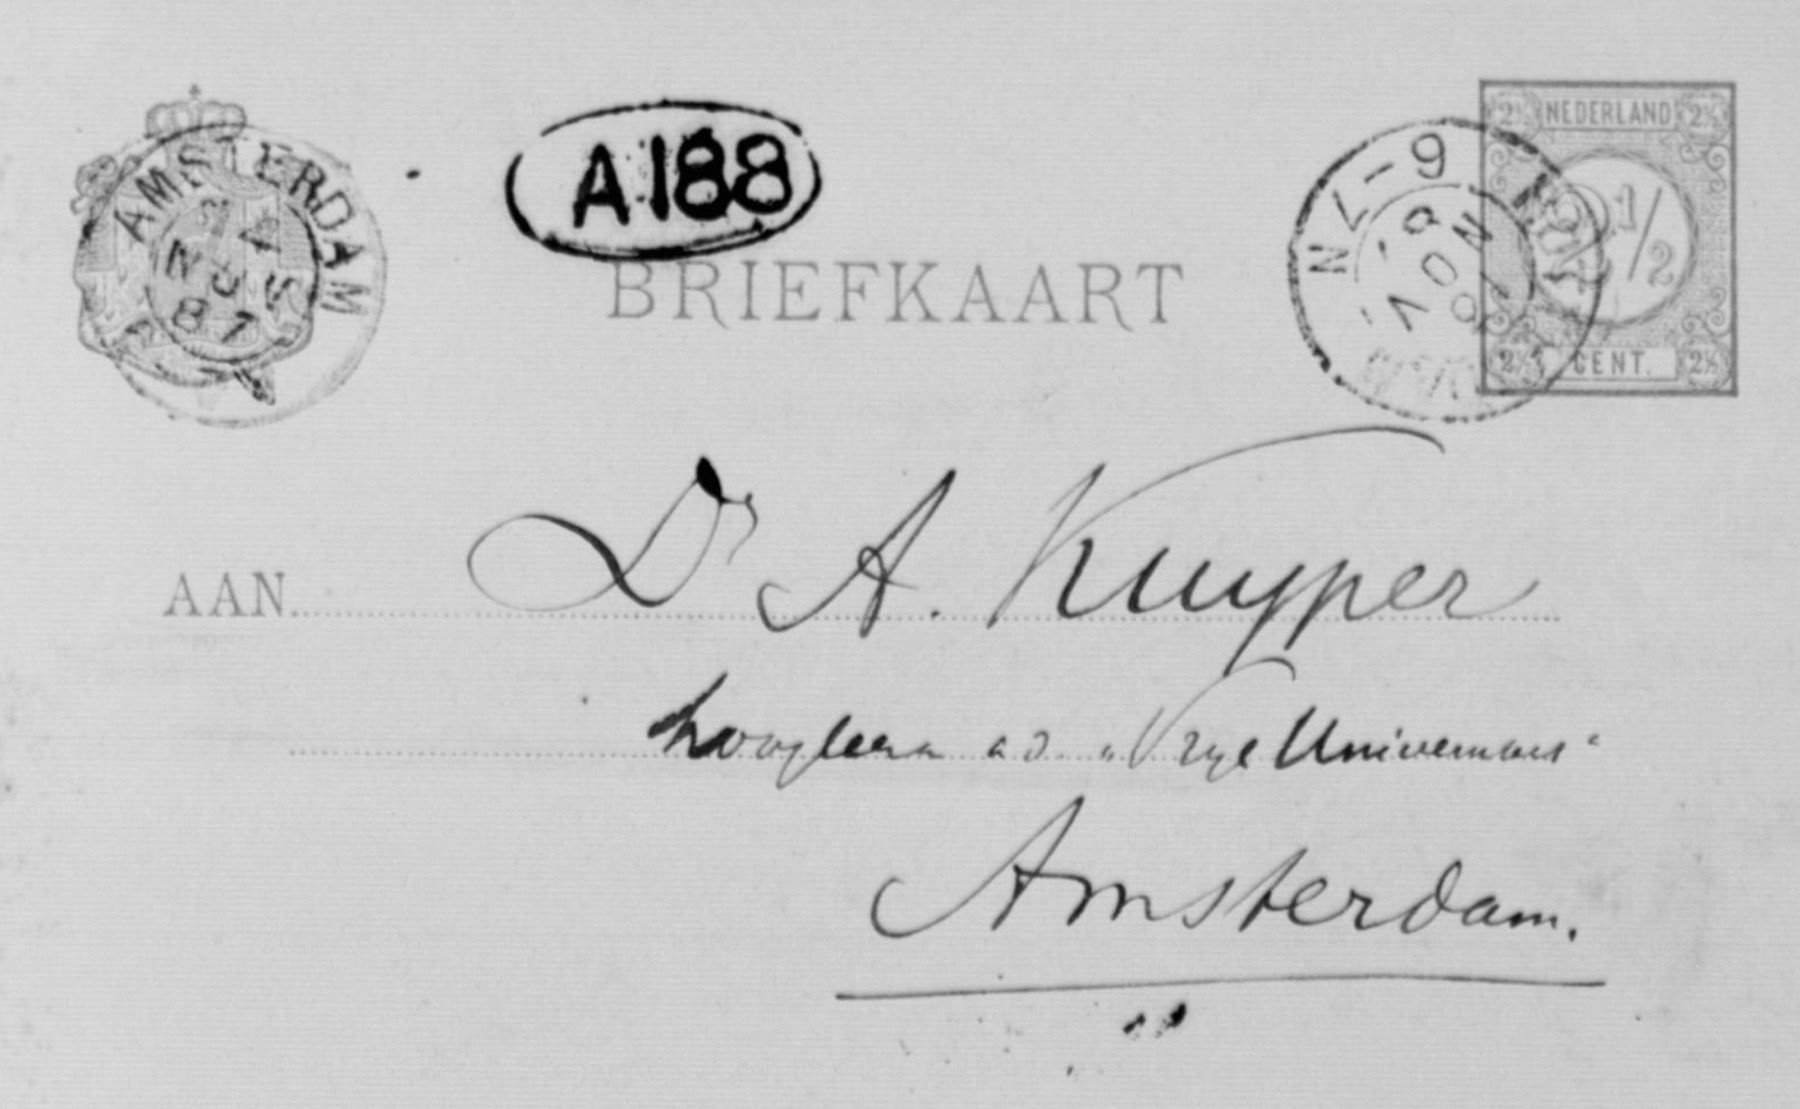 AMSTERDAM
NO
87
A188
BRIEFKAART
NEDERLAND
2½ 2½
2 1/2
2½ CENT. 2½
AAN Dr A. Kuyper
hoogleera a d „Vrije Universiteit“
Amsterdam.